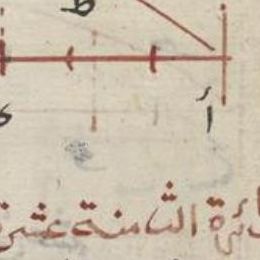 ط
أ
ئرة الثامنة عشر